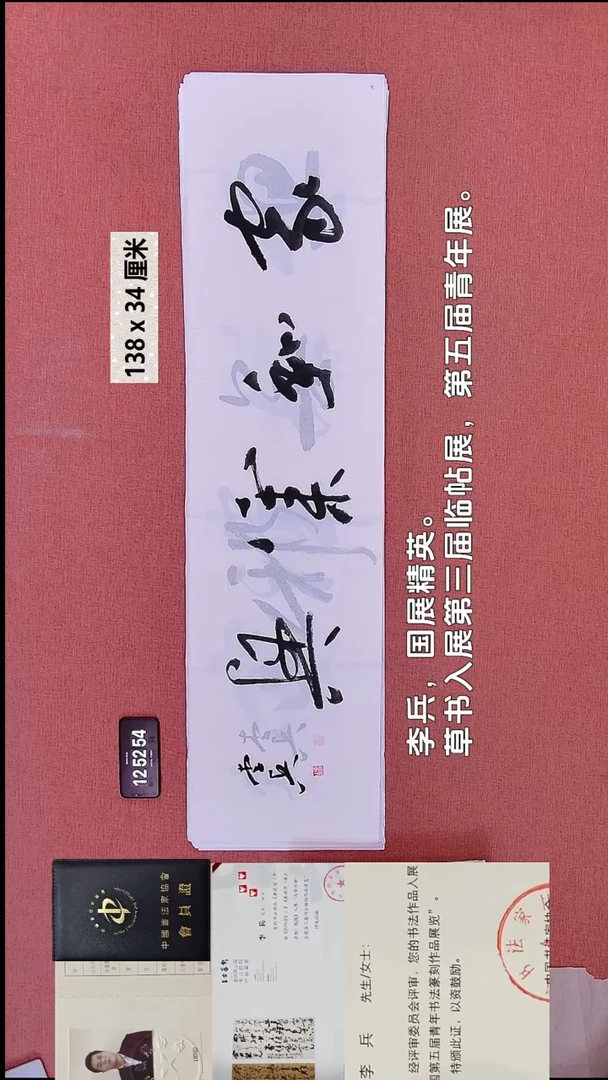 138 x 34 厘米
家和業興
李兵
125254
李兵，国展精英。
草书入展第三届临帖展，第五届青年展。
中國書法家協會
會員證
李 兵 先生/女士：
经评审委员会评审，您的书法作品入展
国第五届青年书法篆刻作品展览”。
特颁此证，以资鼓励。